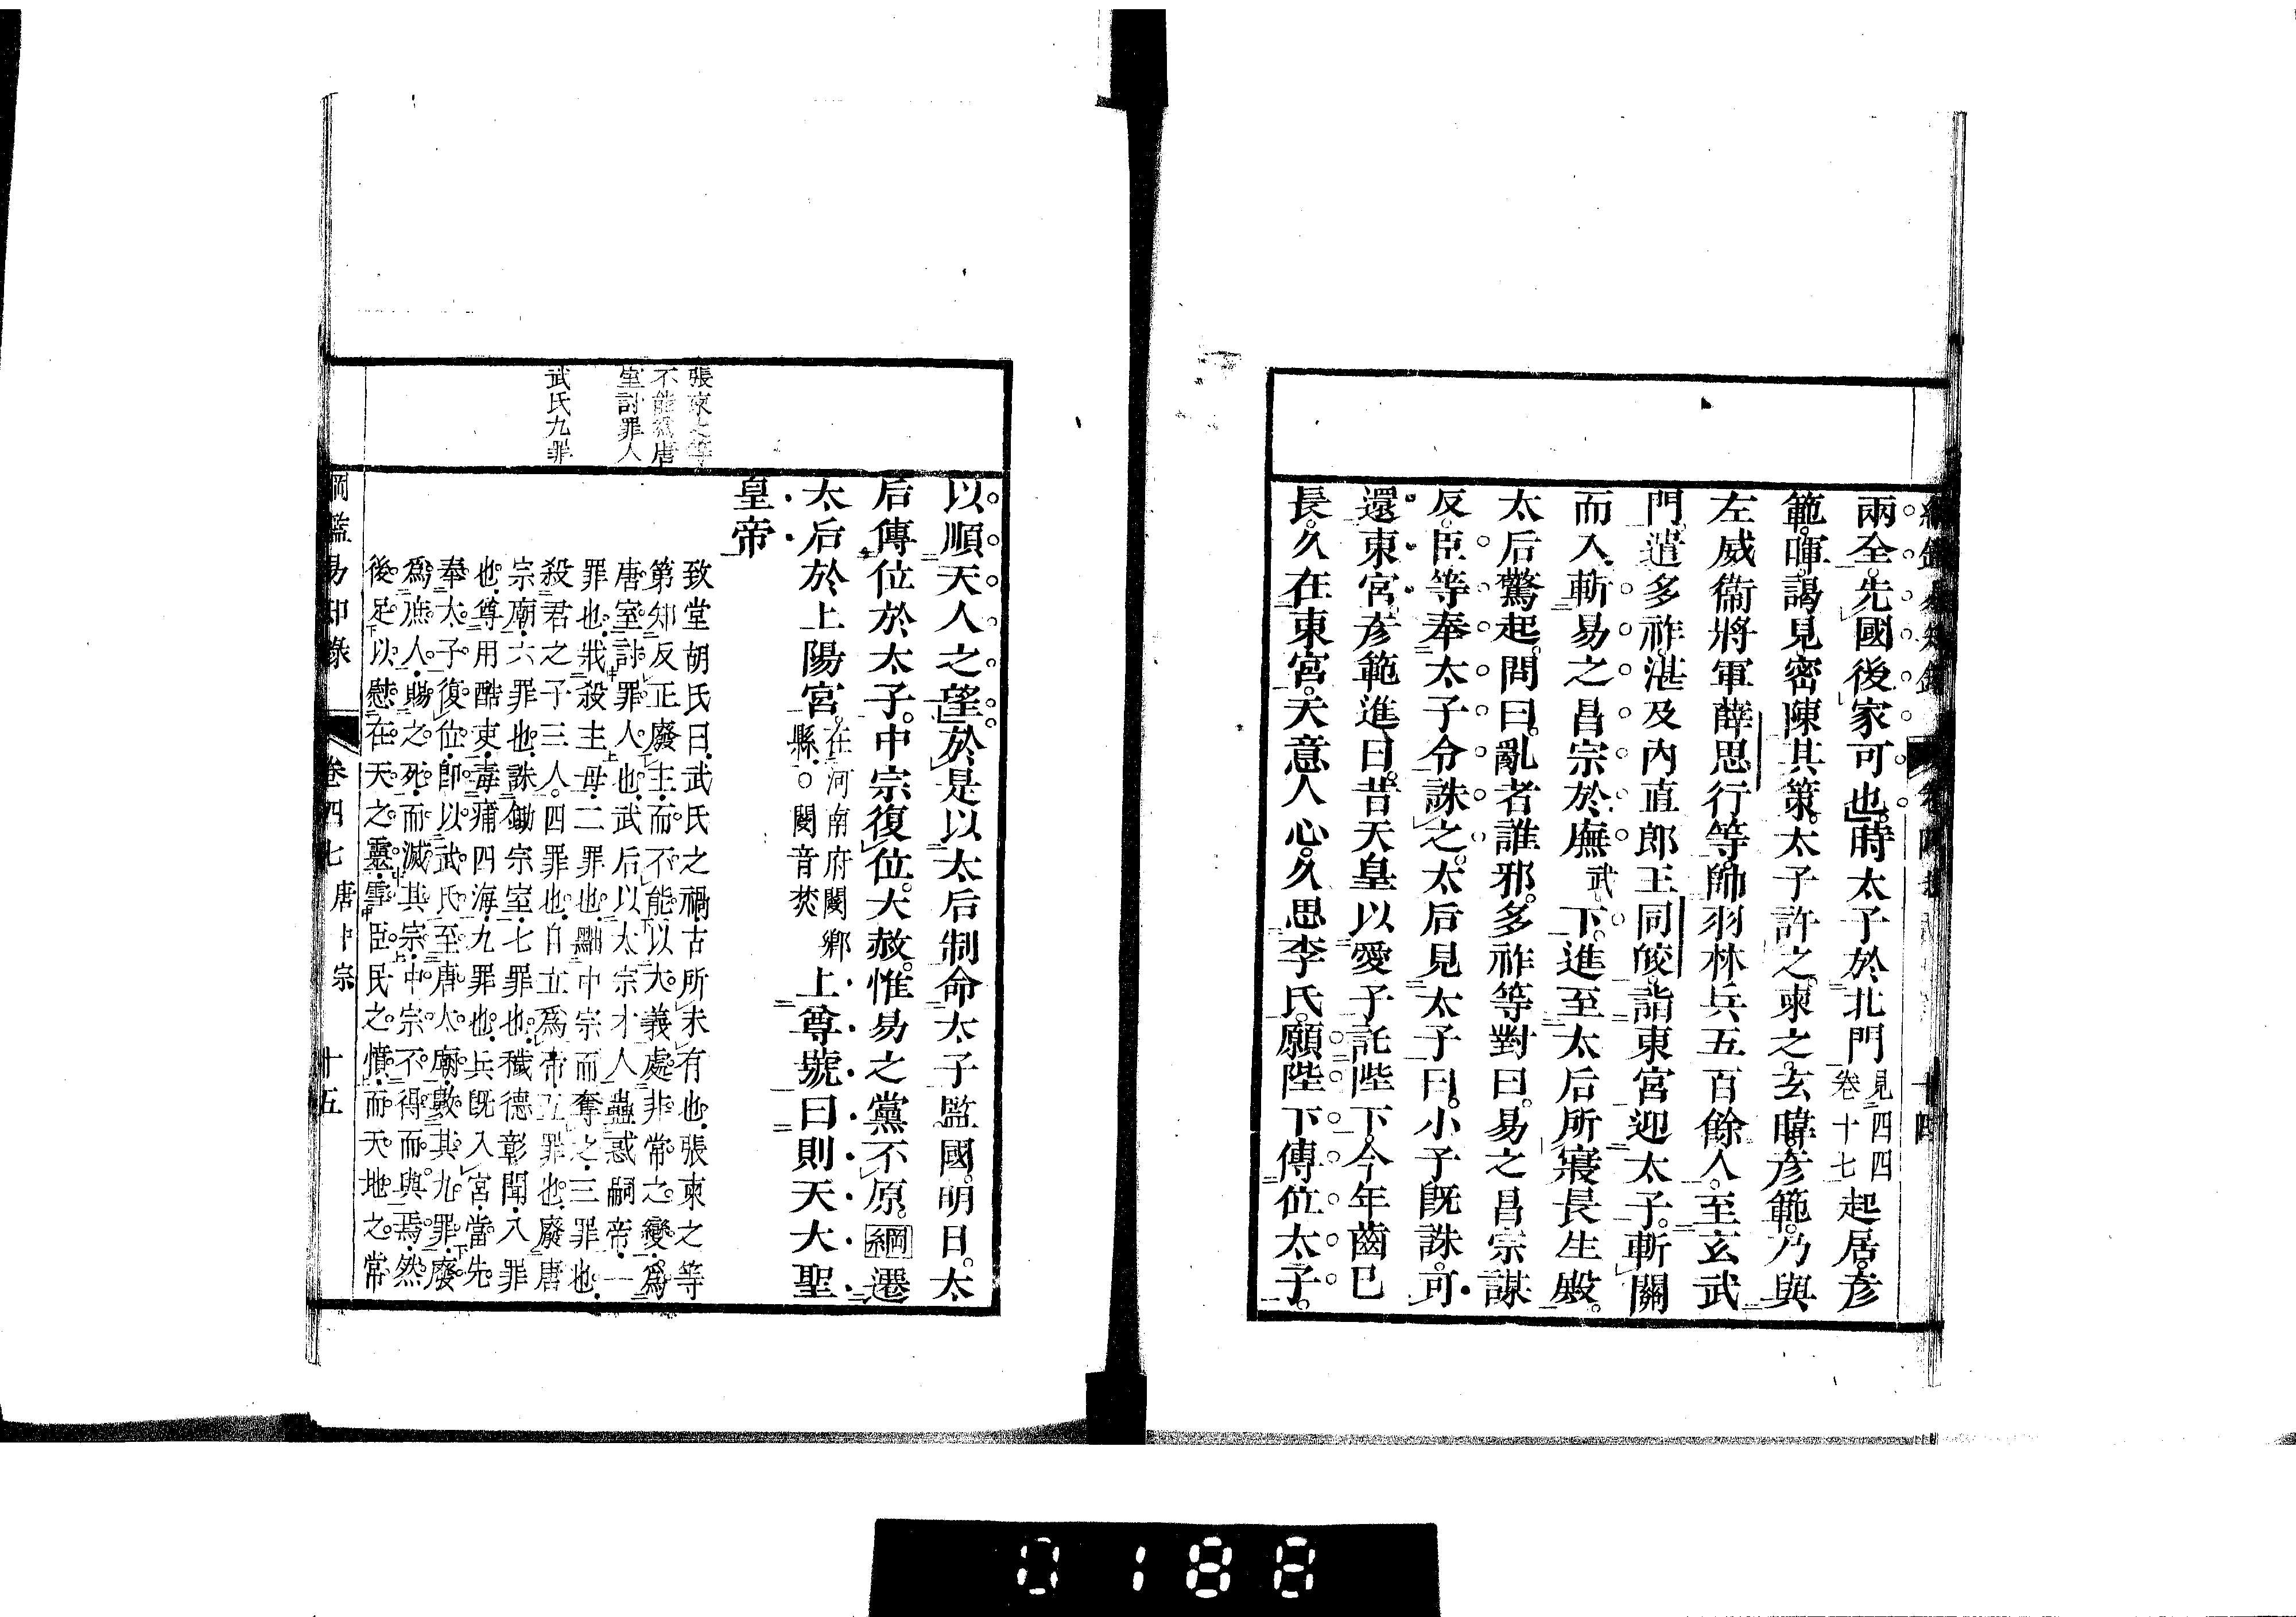 兩全。先國後家可也。時太子於北門見四四卷十七起居。彥
範。暉。謁見。密陳其策。太子許之。柬之。玄暐。彥範。乃與
左威衞將軍薛思行等。帥羽林兵五百餘人。至玄武
門。遣多祚。湛及內直郎王同皎。詣東宮迎太子。斬關
而入。斬易之昌宗於廡武下。進至太后所寢長生殿。
太后驚起。問曰。亂者誰邪。多祚等對曰。易之昌宗謀
反。臣等奉太子令誅之。太后見太子曰。小子旣誅。可
還東宮。彥範進曰。昔天皇以愛子託陛下。今年齒已
長。久在東宮。天意人心。久思李氏。願陛下傳位太子。
以順天人之望。於是以太后制命太子監國。明日。太
后傳位於太子。中宗復位。大赦。惟易之黨不原。綱遷
太后於上陽宮。在河南府閿鄉縣。○閿音焚上尊號曰則天大聖
皇帝
張柬之等
不能爲唐
室討罪人
致堂胡氏曰。武氏之禍。古所未有也。張柬之等
第知反正廢主。而不能以大義處非常之變。爲
唐室討罪人也。武后以太宗才人。蠱惑嗣帝。一
罪也。戕殺主母。二罪也。黜中宗而奪之。三罪也。
武氏九罪
殺君之子三人。四罪也。自立爲帝。五罪也。廢唐
宗廟。六罪也。誅鋤宗室。七罪也。穢德彰聞。八罪
也。尊用酷吏。毒痡四海。九罪也。兵旣入宮。當先
奉太子復位。卽以武氏至唐太廟。數其九罪。廢
爲庶人。賜之死。而滅其宗。中宗不得而與焉。然
後足以慰在天之靈。雪臣民之憤。而天地之常
綱鑑易知錄 卷四七 唐中宗 十五
0188